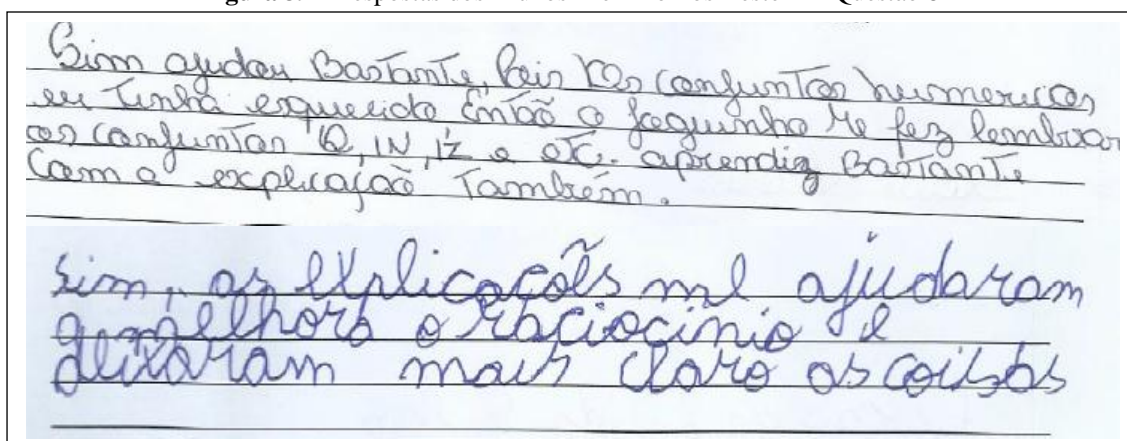 Sim ajudou Bastante, Pois Os conjuntos numericos
eu Tinha esquecido Então o joguinho Me fez lembrar
os conjuntos Q, IN, Z e etc. aprendiz Bastante
com a explicação Também.
sim, as explicações me ajudaram
melhora o raciocinio e
deixaram mais claro as coisas